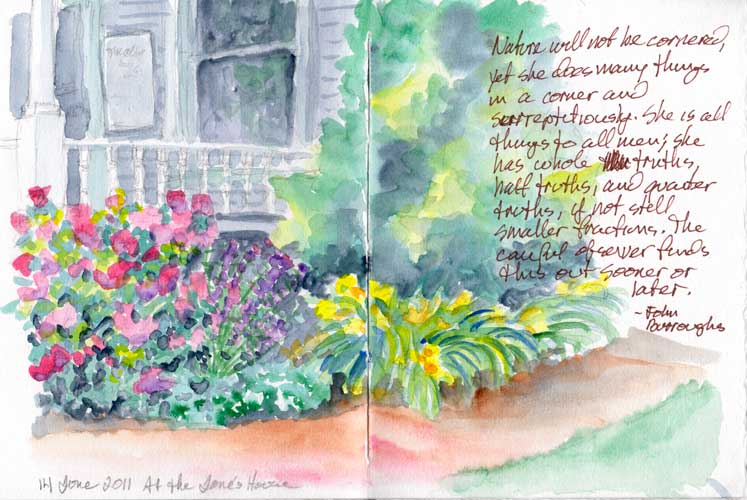 Nature will not be cornered,
yet she does many things
in a corner and
surreptitiously. She is all
things to all men; she
has whole truths,
half truths, and quarter
truths, if not still
smaller fractions. The
careful observer finds
this out sooner or
later.
~ John
Burroughs
14 June 2011 At the Jone's House